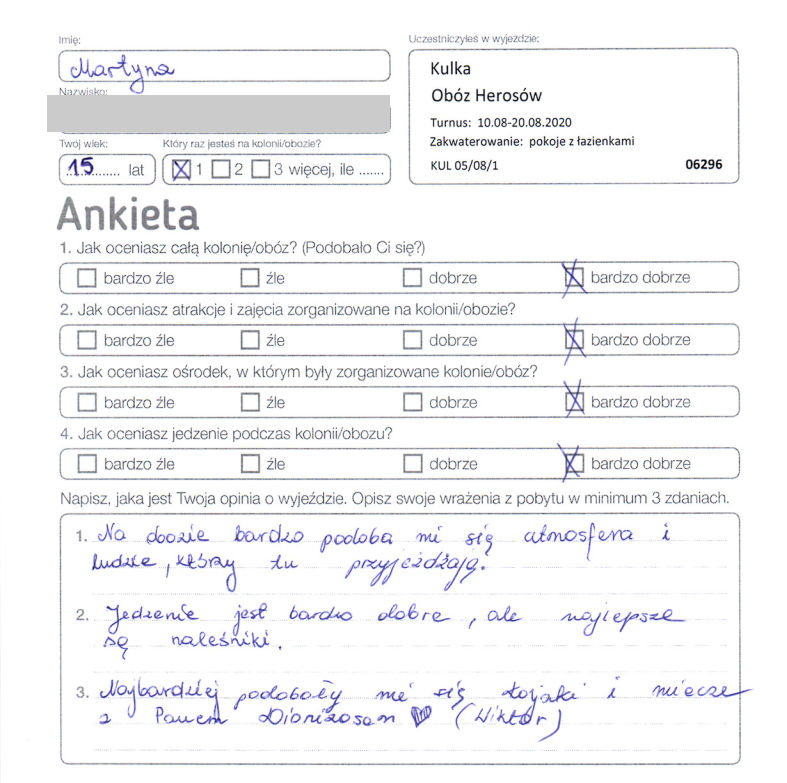 Imię:
Martyna
Nazwisko:
Twój wiek:
15 lat
Który raz jesteś na kolonii/obozie?
1 2 3 więcej, ile .......
Uczestniczyłeś w wyjeździe:
Kulka
Obóz Herosów
Turnus: 10.08-20.08.2020
Zakwaterowanie: pokoje z łazienkami
KUL 05/08/1 06296
Ankieta
1. Jak oceniasz całą kolonię/obóz? (Podobało Ci się?)
bardzo źle źle dobrze bardzo dobrze
2. Jak oceniasz atrakcje i zajęcia zorganizowane na kolonii/obozie?
bardzo źle źle dobrze bardzo dobrze
3. Jak oceniasz ośrodek, w którym były zorganizowane kolonie/obóz?
bardzo źle źle dobrze bardzo dobrze
4. Jak oceniasz jedzenie podczas kolonii/obozu?
bardzo źle źle dobrze bardzo dobrze
Napisz, jaka jest Twoja opinia o wyjeździe. Opisz swoje wrażenia z pobytu w minimum 3 zdaniach.
1. Na obozie bardzo podoba mi się atmosfera i
ludzie, którzy tu przyjeżdżają.
2. Jedzenie jest bardzo dobre, ale najlepsze
są naleśniki.
3. Najbardziej podobały mi się łojaki i miecze
z Panem Dionizosem ♡ (Wiktor)